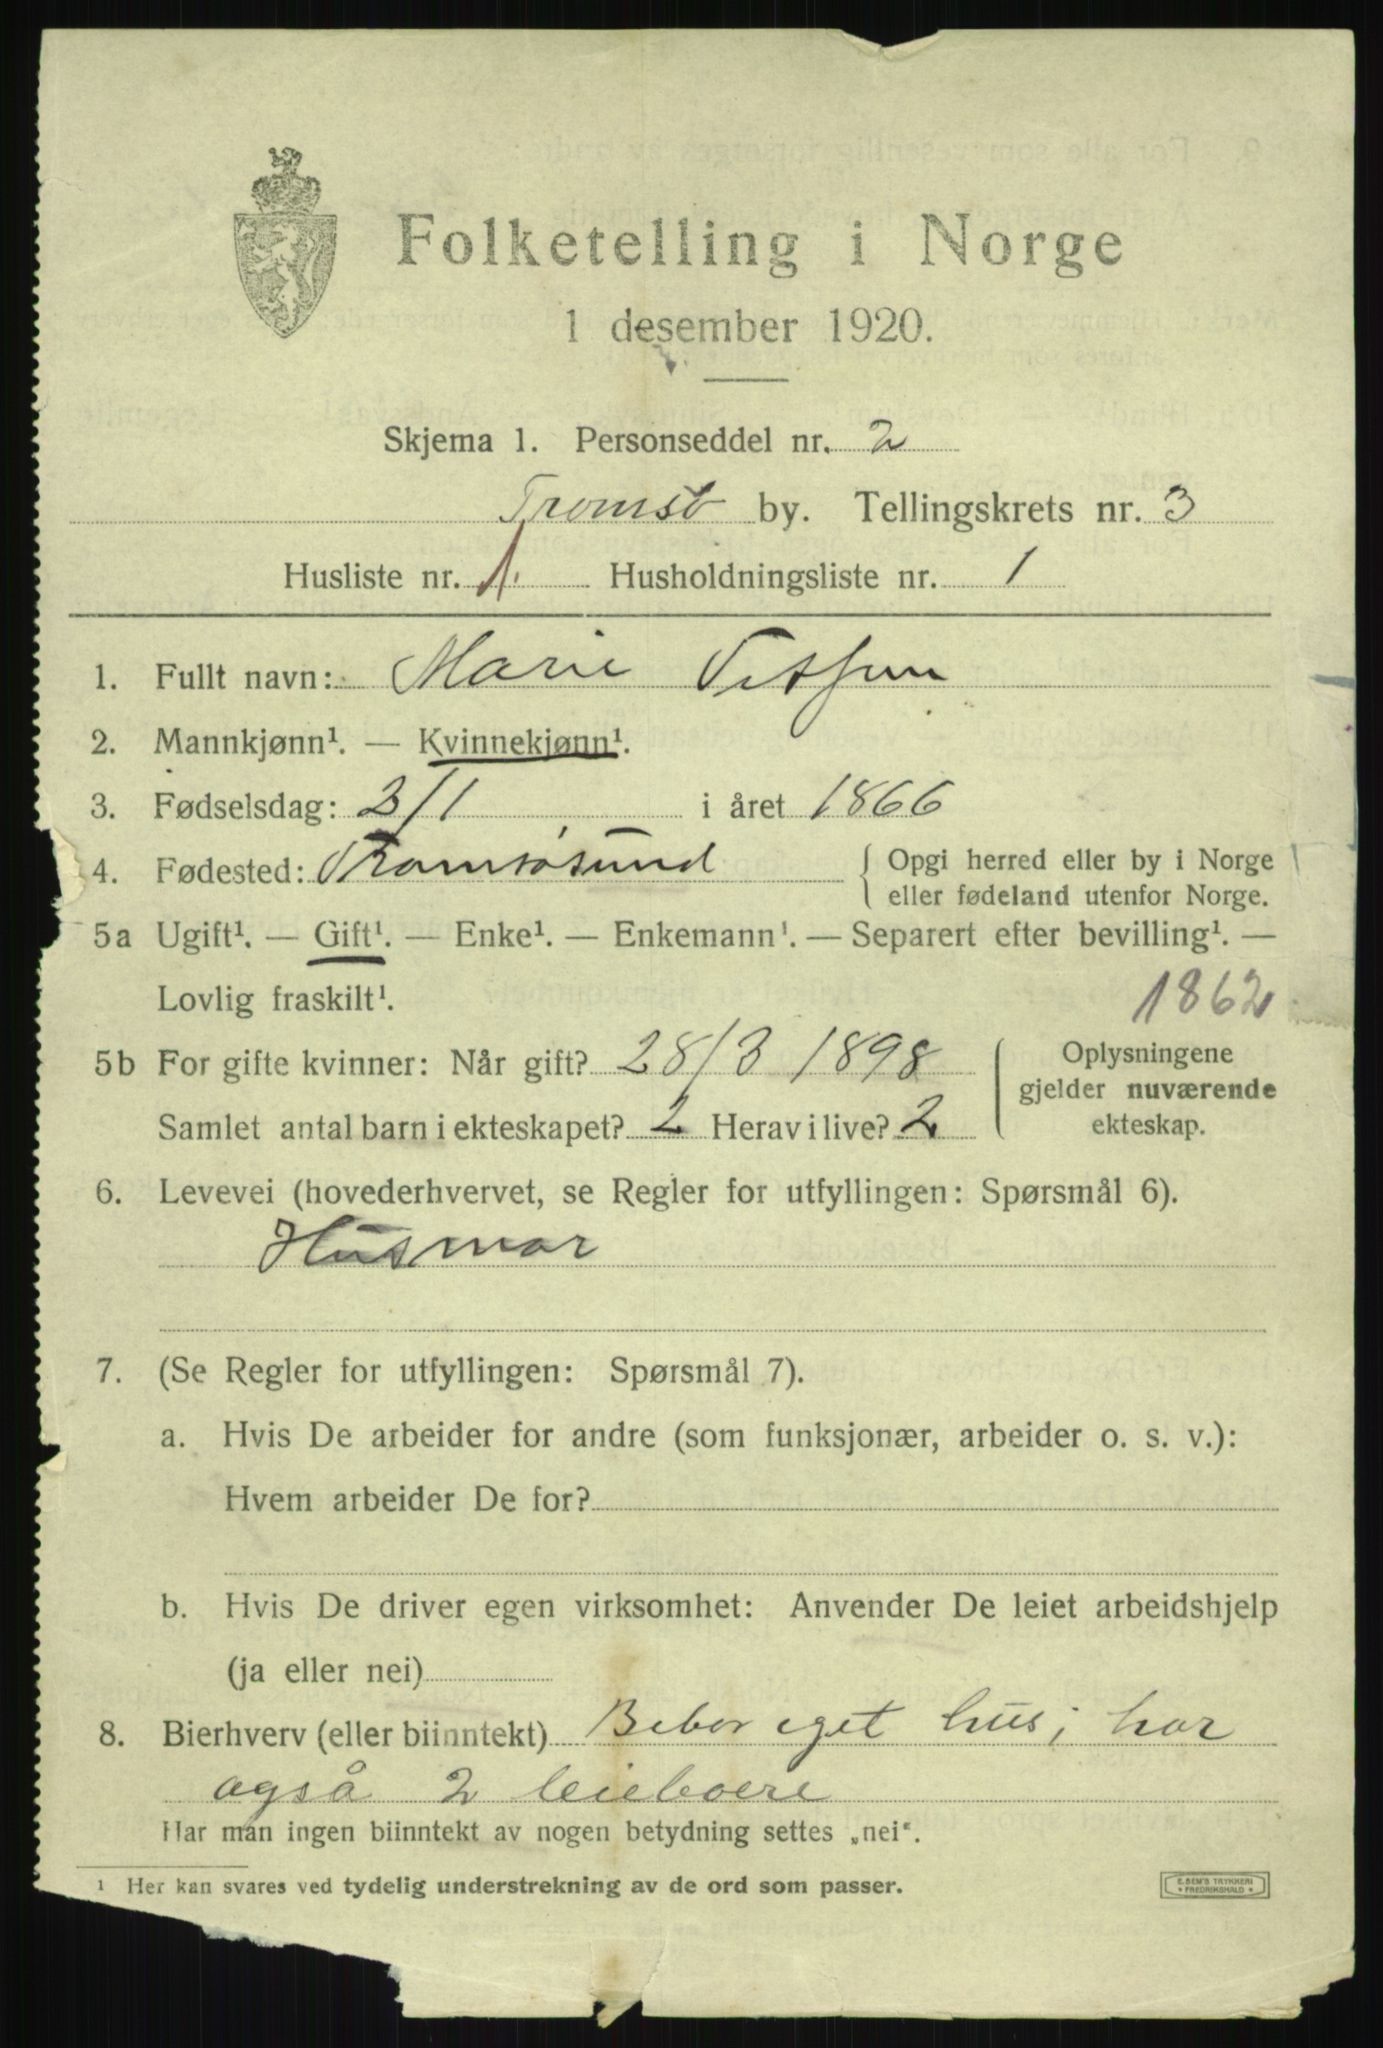 Folketelling i Norge
1 desember 1920.
Skjema 1. Personseddel nr. 2
Tromsö by. Tellingskrets nr. 3
Husliste nr. 1. Husholdningsliste nr. 1
1. Fullt navn: Marie
2. Mannkjønn¹. — Kvinnekjønn¹.
3. Fødselsdag: 3/1 i året 1866
4. Fødested: Tromsøsund { Opgi herred eller by i Norge
eller fødeland utenfor Norge.
5a Ugift¹. — Gift¹. — Enke¹. — Enkemann¹. — Separert efter bevilling¹. —
Lovlig fraskilt¹.
1862
5b For gifte kvinner: Når gift? 28/3 1898
Samlet antal barn i ekteskapet? 2 Herav i live? 2
Oplysningene
gjelder nuværende
ekteskap.
6. Levevei (hovederhvervet, se Regler for utfyllingen: Spørsmål 6).
Husmor
7. (Se Regler for utfyllingen: Spørsmål 7).
a. Hvis De arbeider for andre (som funksjonær, arbeider o. s. v.):
Hvem arbeider De for?
b. Hvis De driver egen virksomhet: Anvender De leiet arbeidshjelp
(ja eller nei)
8. Bierhverv (eller biinntekt) Bebor eget hus; har
også 2 leieboere
Har man ingen biinntekt av nogen betydning settes „nei“.
¹ Her kan svares ved tydelig understrekning av de ord som passer.
E. SEM'S TRYKKERI
FREDRIKSHALD